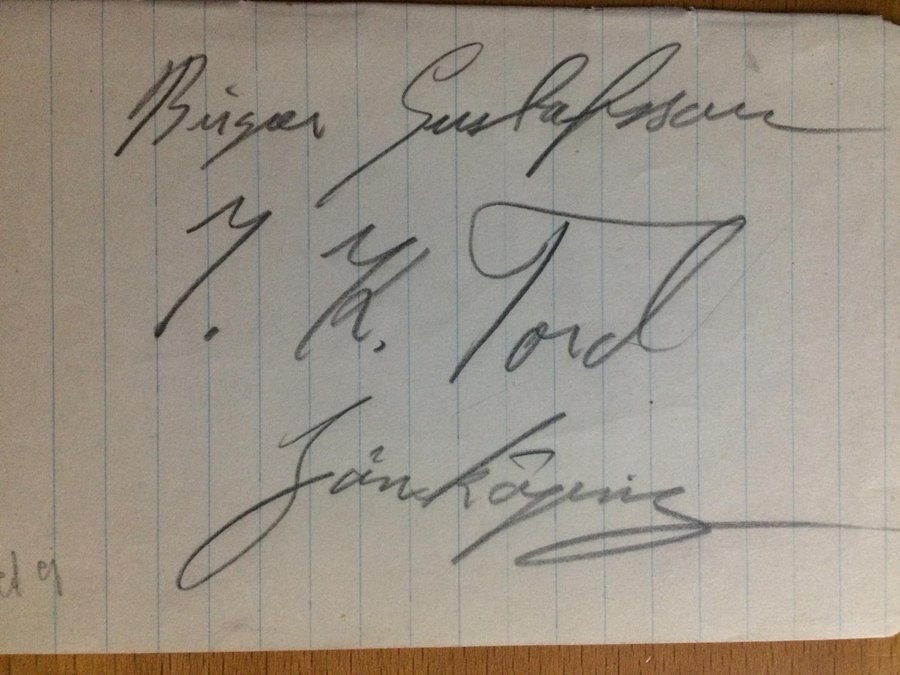 Birger Gustafsson
I. K. Tord
Jönköping